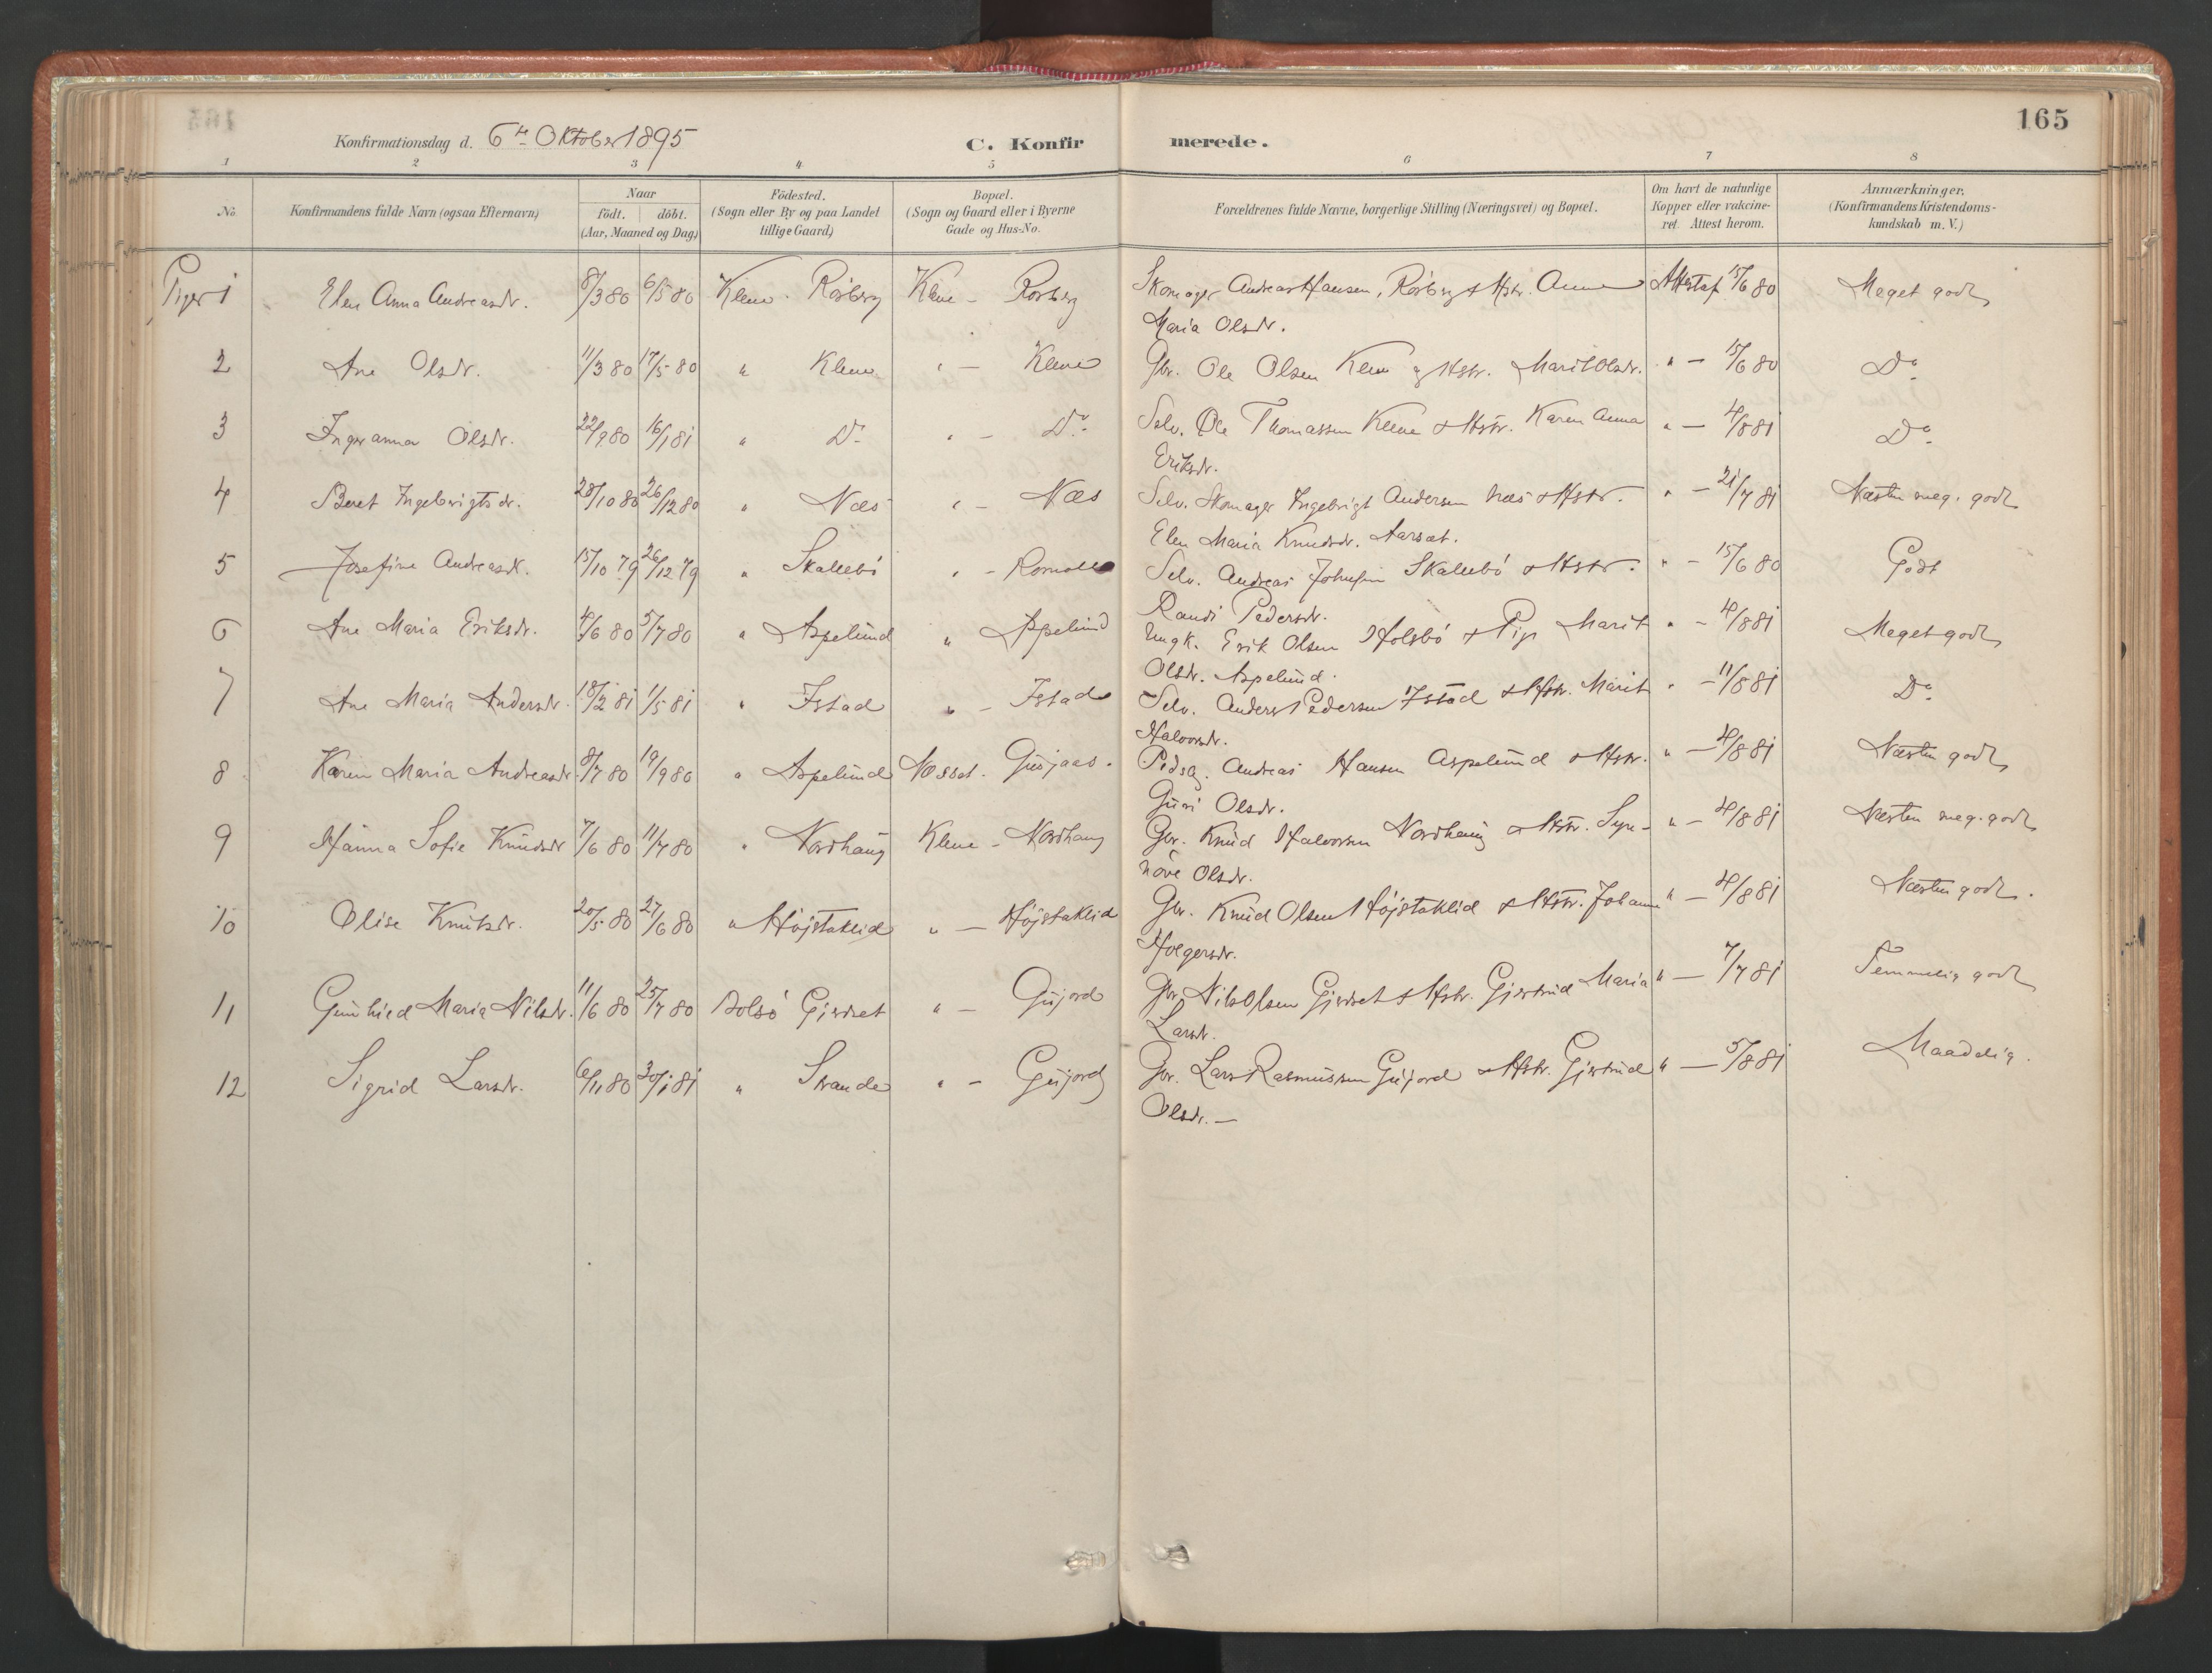 165
Konfirmationsdag d. 6te Oktober 1895 C. Konfir merede.
1 2 3 4 5 6 7 8
No Konfirmandens fulde Navn (ogsaa Efternavn) Naar födt. döbt. (Aar, Maaned og Dag) Födested. (Sogn eller By og paa Landet tillige Gaard) Bopæl. (Sogn og Gaard eller i Byerne Gade og Hus-No. Forældrenes fulde Navne, borgerlige Stilling (Næringsvei) og Bopæl. Om havt de naturlige Kopper eller vakcineret. Attest herom. Anmærkninger. (Konfirmandens Kristendomskundskab m. V.)
Piger 1 Elen Anna Andreasdr. 8/3 80 6/5 80 Kleve - Rösberg Kleve - Rösberg Skomager Andreas Hansen, Rösberg & Hstr. Anne Attest af 15/6 80 Meget godt
Maria Olsdr.
2 Ane Olsdr. 11/3 80 17/5 80 " Kleve " - Kleve Gbr. Ole Olsen Kleve og Hstr. Marit Olsdr. " - 15/6 80 Do
3 Inger Anna Olsdr. 22/9 80 16/1 81 " Do " - Do Selv. Ole Thomassen Kleve & Hstr. Karen Anna " - 4/8 81 Do
Eriksdr.
4 Beret Ingebrigtsdr. 28/10 80 26/12 80 " Næs " - Næs Selv. Skomager Ingebrigt Andersen Næs & Hstr. " - 21/7 81 Næsten meg. godt
Elen Maria Knudsdr. Aarsæt.
5 Josefine Andreasdr. 15/10 79 26/12 79 " Skalleбö " - Selv. Andreas Johnsen Skallebö & Hstr. " - 15/6 80 Godt
Randi Pedersdr.
6 Ane Maria Eriksdr. 4/6 80 5/7 80 " Aspelund " Aspelund Ungk. Erik Olsen Holsbö & Pige Marit " - 4/8 81 Meget godt
Olsdr. Aspelund.
7 Ane Maria Andersdr. 18/2 81 1/5 81 " Istad " - Istad Selv. Anders Pedersen Istad & Hstr. Marit " - 11/8 81 Do
Halvorsdr.
8 Karen Maria Andreasdr. 8/7 80 19/9 80 " Aspelund Næsset - Gusjaas. Andreas Hansen Aspelund & Hstr. " - 4/8 81 Næsten godt
Guri Olsdr.
9 Hanna Sofie Knudsdr 7/6 80 11/7 80 " Nordhaug Kleve - Nordhaug Gbr. Knud Halvorsen Nordhaug & Hstr. Syn- " - 4/8 81 Næsten meg. godt
növe Olsdr.
10 Olise Knutsdr. 20/5 80 27/6 80 " Höjstaklid " - Höjstaklid Gbr. Knud Olsen Höjstaklid & Hstr. Johanne " - 4/8 81 Næsten godt.
Holgersdr.
11 Gunhild Maria Nilsdr. 11/6 80 25/7 80 Bolsö Gjerdset " - Gujord Gbr. Nils Olsen Gjerdset & Hstr. Gjertrud Maria " - 7/7 81 Temmelig godt
Larsdr.
12 Sigrid Larsdr. 6/11 80 30/1 81 " Strande " - Gujord Gbr. Lars Rasmussen Gujord & Hstr. Gjertrud " - 5/8 81 Maadelig.
Olsdr. -